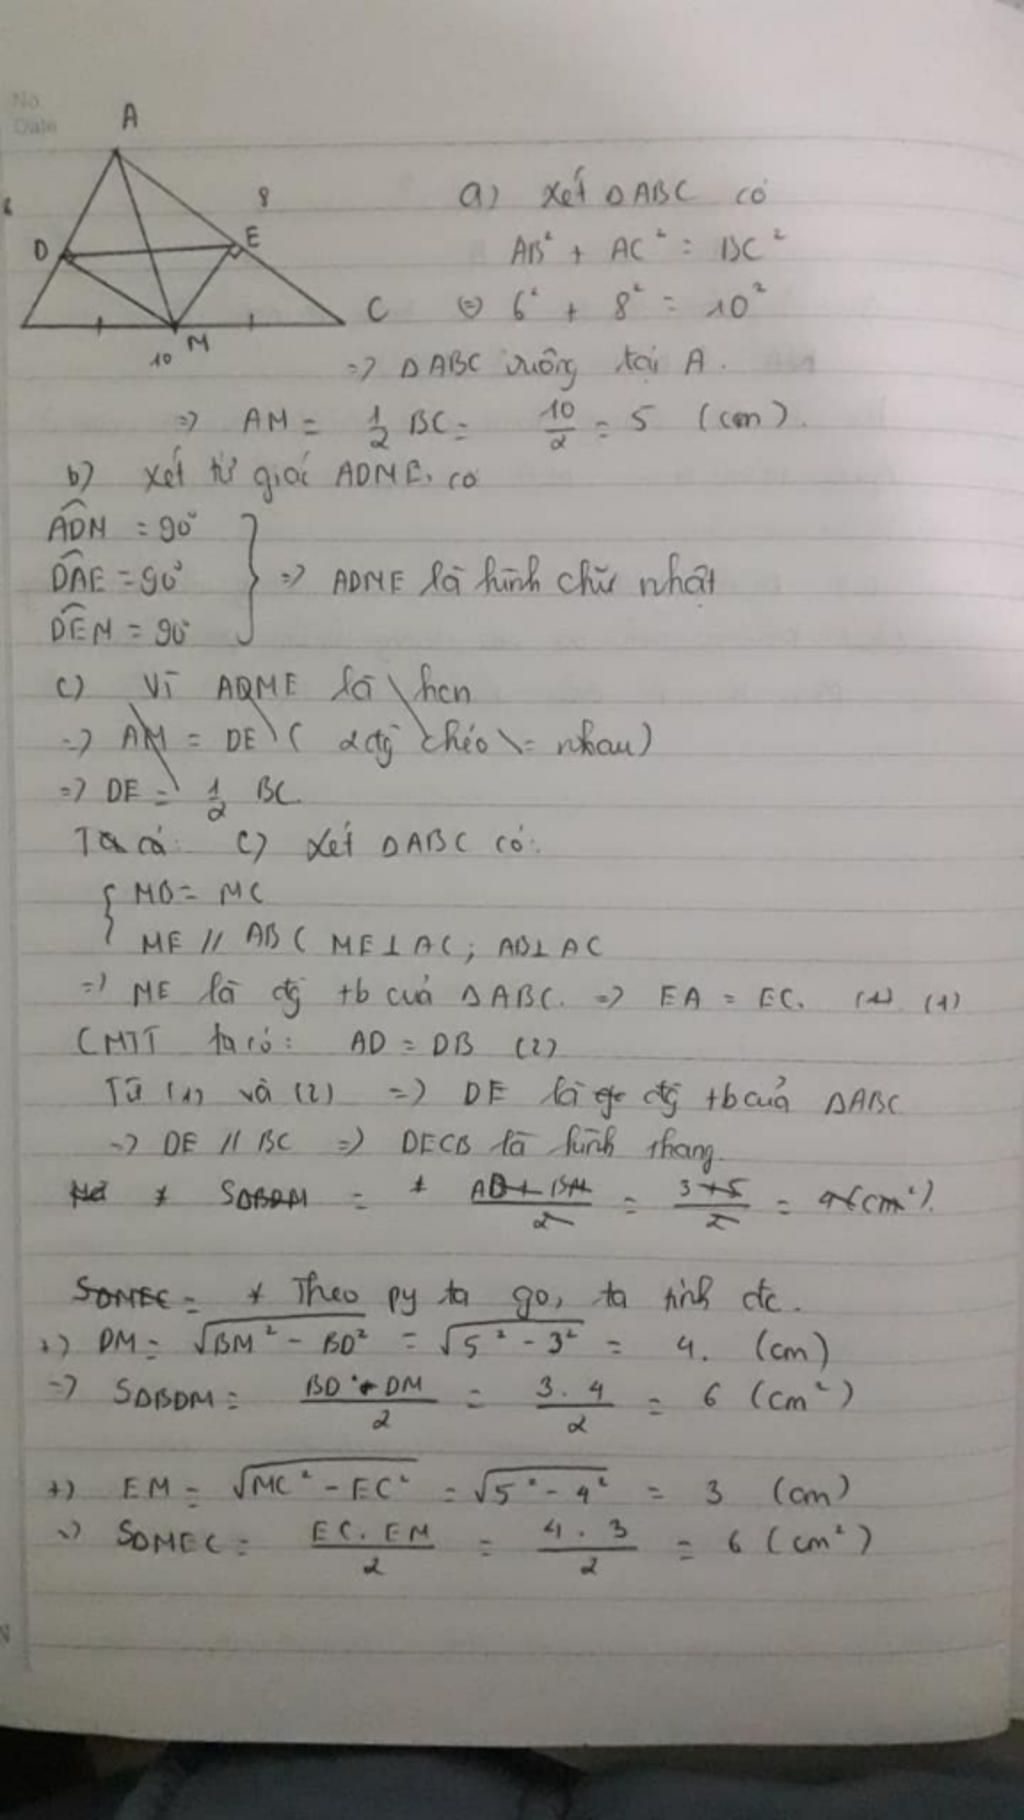 No.
Date
A
8
D
E
C
M
10
a) Xét ΔABC có
AB² + AC² = BC²
(=) 6² + 8² = 10²
=> ΔABC vuông tại A.
=> AM = 1/2 BC = 10/2 = 5 (cm).
b) Xét tứ giác ADME có
ADM = 90°
DAE = 90° => ADME là hình chữ nhật
DEM = 90°
c) Vì ADME là hcn
=> AM = DE ( 2 đg chéo = nhau)
=> DE = 1/2 BC
Ta có: c) Xét ΔABC có:
MB = MC
ME // AB ( ME ⊥ AC; AB ⊥ AC
=> ME là đg tb của ΔABC. => EA = EC. (1) (1)
CMTT ta có: AD = DB (2)
Từ (1) và (2) => DE là đg tb của ΔABC
=> DE // BC => DECB là hình thang.
* SΔBDM = * = 3+5/2 = 4 (cm²).
SΔMEC = * Theo py ta go, ta tính đc.
+) DM = √BM² - BD² = √5² - 3² = 4. (cm)
=> SΔBDM = BD . DM/2 = 3 . 4/2 = 6 (cm²)
+) EM = √MC² - EC² = √5² - 4² = 3 (cm)
=> SΔMEC = EC . EM/2 = 4 . 3/2 = 6 (cm²)